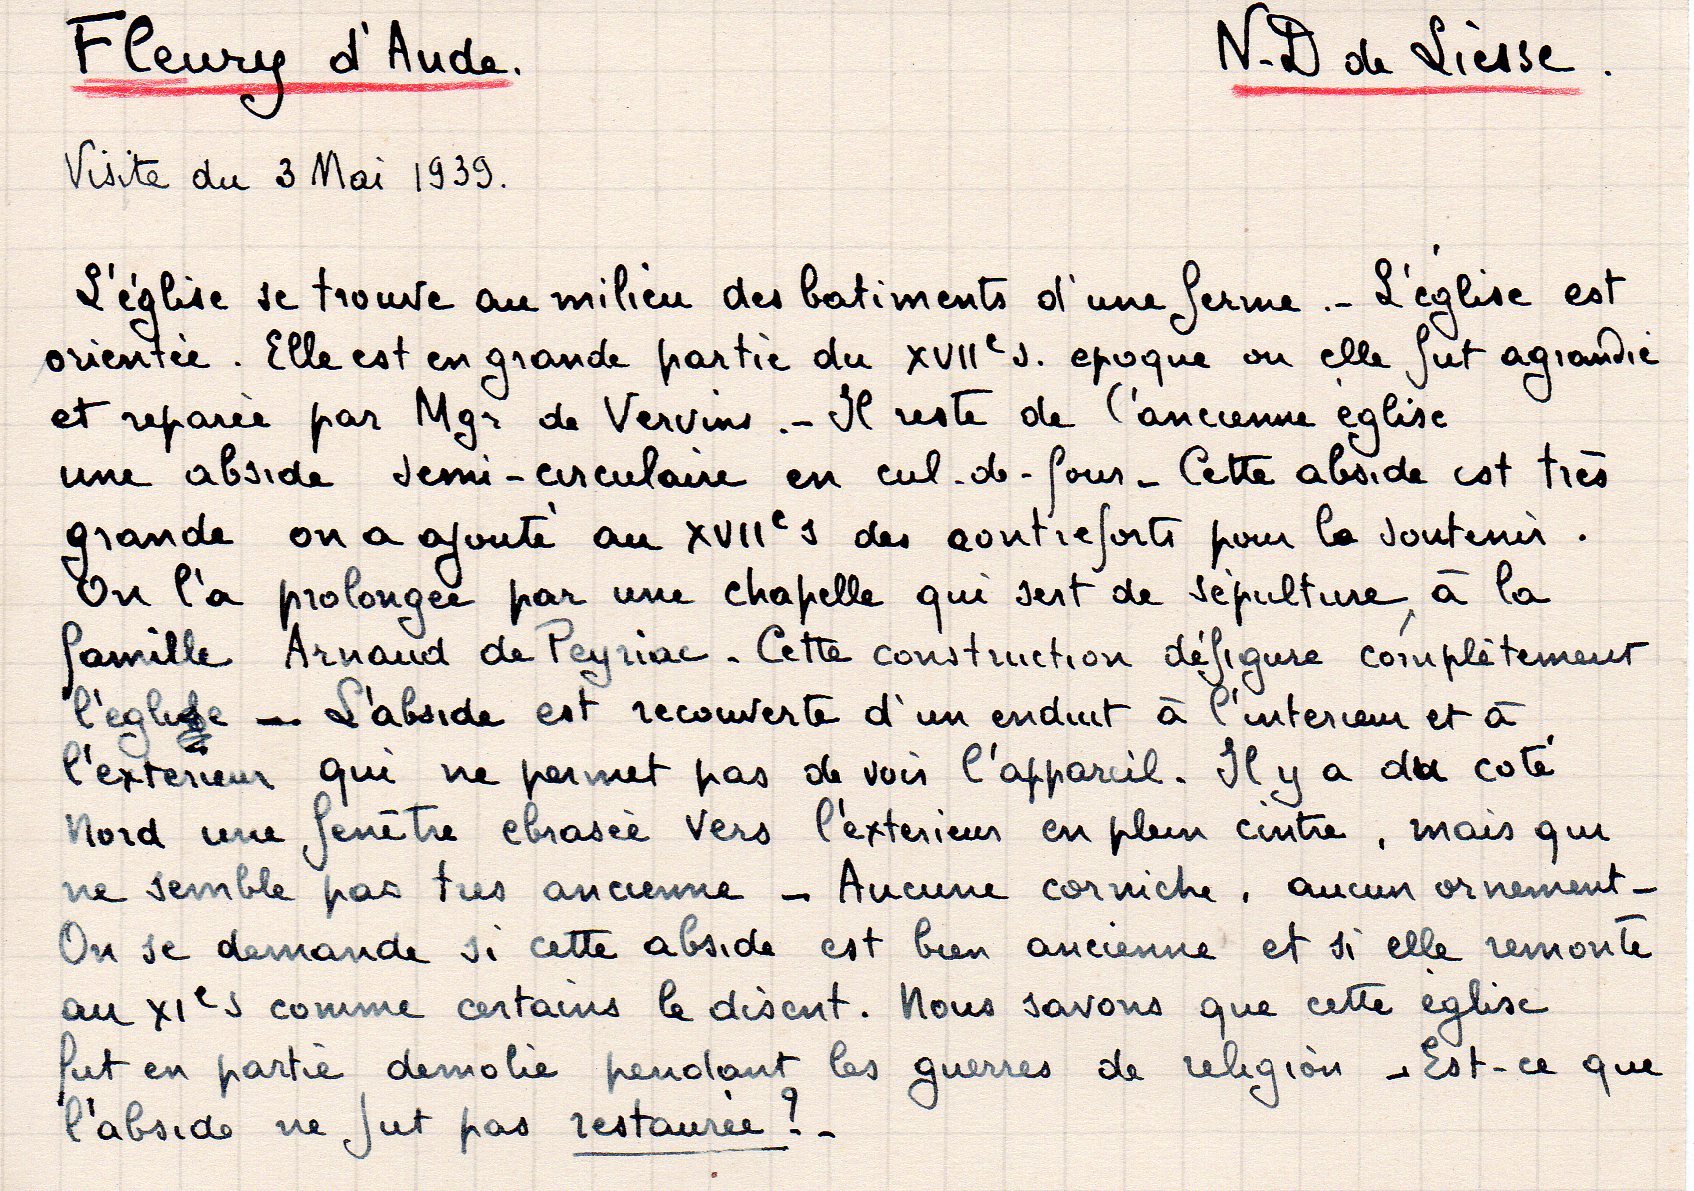 Fleury d'Aude. N-D de Liesse.
Visite du 3 Mai 1939.
L'église se trouve au milieu des batiments d'une ferme.- L'église est
orientée. Elle est en grande partie du XVIIe s. epoque ou elle fut agrandie
et reparée par Mgr de Vervins.- Il reste de l'ancienne église
une abside semi-circulaire en cul-de-four- Cette abside est très
grande on a ajouté au XVIIe s des contreforts pour la soutenir.
On l'a prolongée par une chapelle qui sert de sépulture à la
famille Arnaud de Peyriac. Cette construction défigure complètement
l'eglise - L'abside est recouverte d'un enduit à l'interieur et à
l'exterieur qui ne permet pas de voir l'appareil. Il y a du coté
Nord une fenêtre ebrasée vers l'exterieur en plein cintre, mais qui
ne semble pas tres ancienne - Aucune corniche, aucun ornement-
On se demande si cette abside est bien ancienne et si elle remonte
au XIe s comme certains le disent. Nous savons que cette église
fut en partie demolie pendant les guerres de religion - Est-ce que
l'abside ne fut pas restaurée?-